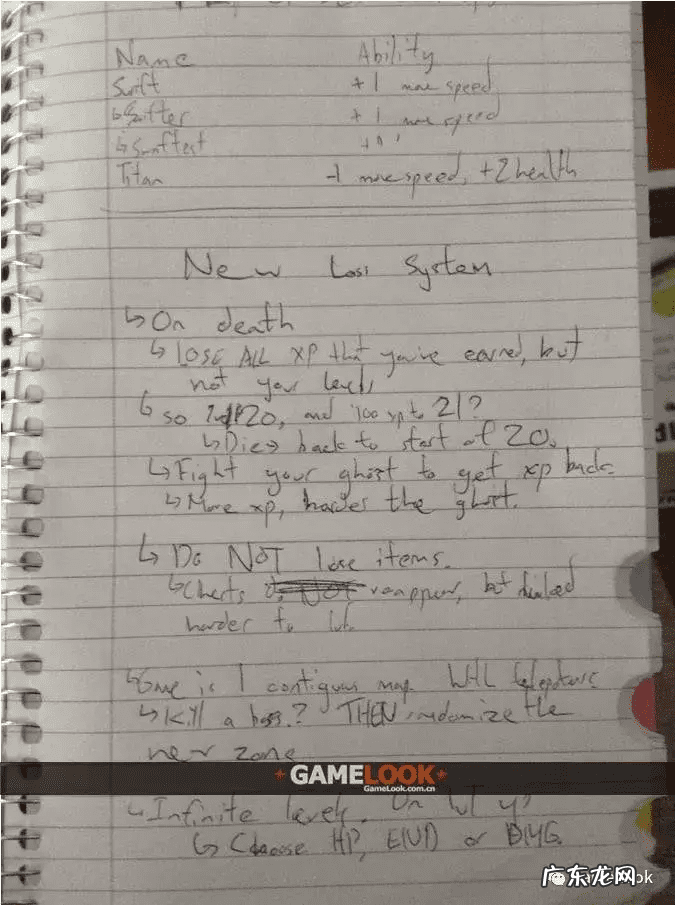 Name Ability
Swift + 1 move speed
↳ Swifter + 1 move speed
↳ Swiftest + 1 "
Titan -1 move speed, +2 health
New Loss System
↳ On death
↳ LOSE ALL XP that you've earned, but
not your levels
↳ so 20, and 100 xp to 21?
↳ Die → back to start of 20.
↳ Fight your ghost to get xp back.
↳ More xp, harder the ghost.
↳ Do NOT lose items.
↳ Chests reappear, but
harder to
↳ Game is 1 contiguous map. With teleporters
↳ Kill a boss? THEN randomize the
new zone
GAMELOOK
GameLook.com.cn
↳ Infinite levels. On lvl up
↳ Choose HP, END or DMG.
广东龙网
ok